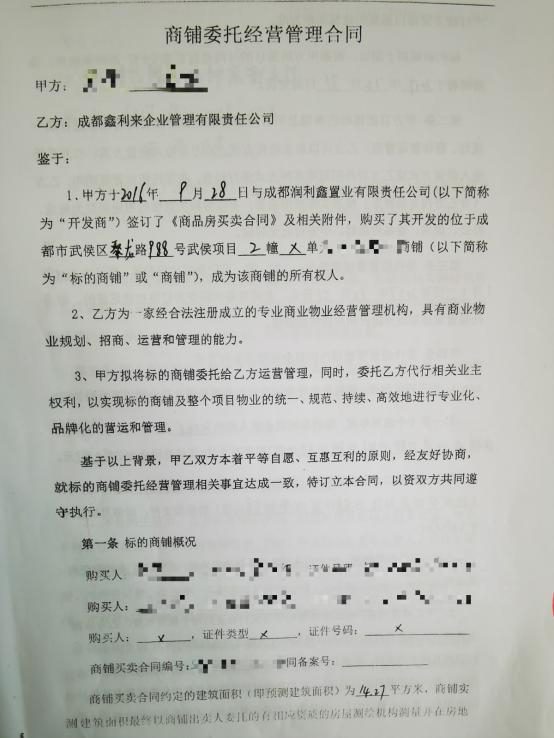 商铺委托经营管理合同
甲方：
乙方：成都鑫利来企业管理有限责任公司
鉴于：
1、甲方于2016年 9 月 28 日与成都润利鑫置业有限责任公司(以下简称
为“开发商”）签订了《商品房买卖合同》及相关附件，购买了其开发的位于成
都市武侯区 路988号武侯项目 2 幢 X 单 商铺（以下简称
为“标的商铺”或“商铺”），成为该商铺的所有权人。
2、乙方为一家经合法注册成立的专业商业物业经营管理机构，具有商业物
业规划、招商、运营和管理的能力。
3、甲方拟将标的商铺委托给乙方运营管理，同时，委托乙方代行相关业主
权利，以实现标的商铺及整个项目物业的统一、规范、持续、高效地进行专业化、
品牌化的营运和管理。
基于以上背景，甲乙双方本着平等自愿、互惠互利的原则，经友好协商，
就标的商铺委托经营管理相关事宜达成一致，特订立本合同，以资双方共同遵
守执行。
第一条 标的商铺概况
购买人
购买人：
购买人： X ，证件类型 X ，证件号码： X
商铺买卖合同编号： 同备案号：
商铺买卖合同约定的建筑面积（即预测建筑面积）为14.27平方米，商铺实
测建筑面积最终以商铺出卖人委托的有相应资质的房屋测绘机构测量并在房地